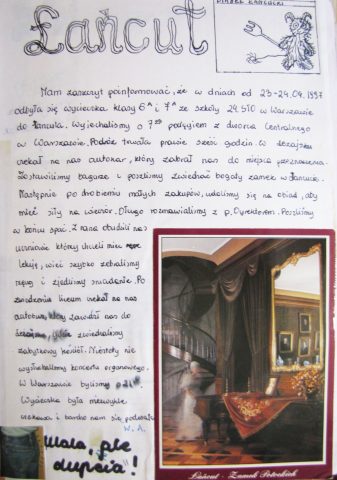 Łańcut
DIABEŁ ŁAŃCUCKI
Mam zaszczyt poinformować, że w dniach od 23-24.04.1997
odbyła się wycieczka klasy 6ᴬ i 7ᴬ ze szkoły 24 STO w Warszawie
do Łańcuta. Wyjechaliśmy o 7²⁰ pociągiem z dworca Centralnego
w Warszawie. Podróż trwała prawie sześć godzin. W Leżajsku
czekał na nas autokar, który zabrał nas do miejsca przeznaczenia.
Zostawiliśmy bagaże i poszliśmy zwiedzać bogaty zamek w Łańcucie.
Następnie po drobieniu małych zakupów, udaliśmy się na obiad, aby
mieć siły na wieczór. Długo rozmawialiśmy z p. Dyrektorem. Poszliśmy
w końcu spać. Z rana obudzili nas
uczniowie którzy chcieli mieć
lekcje, więc szybko zebraliśmy
rzeczy i zjedliśmy śniadanie. Po
śniadaniu czekał na nas
autobus, który zawiózł nas do
Leżajska, gdzie zwiedzaliśmy
zabytkowy kościół. Niestety nie
wysłuchaliśmy koncertu organowego.
W Warszawie byliśmy o 21
Wycieczka była niezwykle
ciekawa i bardzo nam się podobała
W. A.
Mała, ale
dupcia!
Łańcut - Zamek Potockich